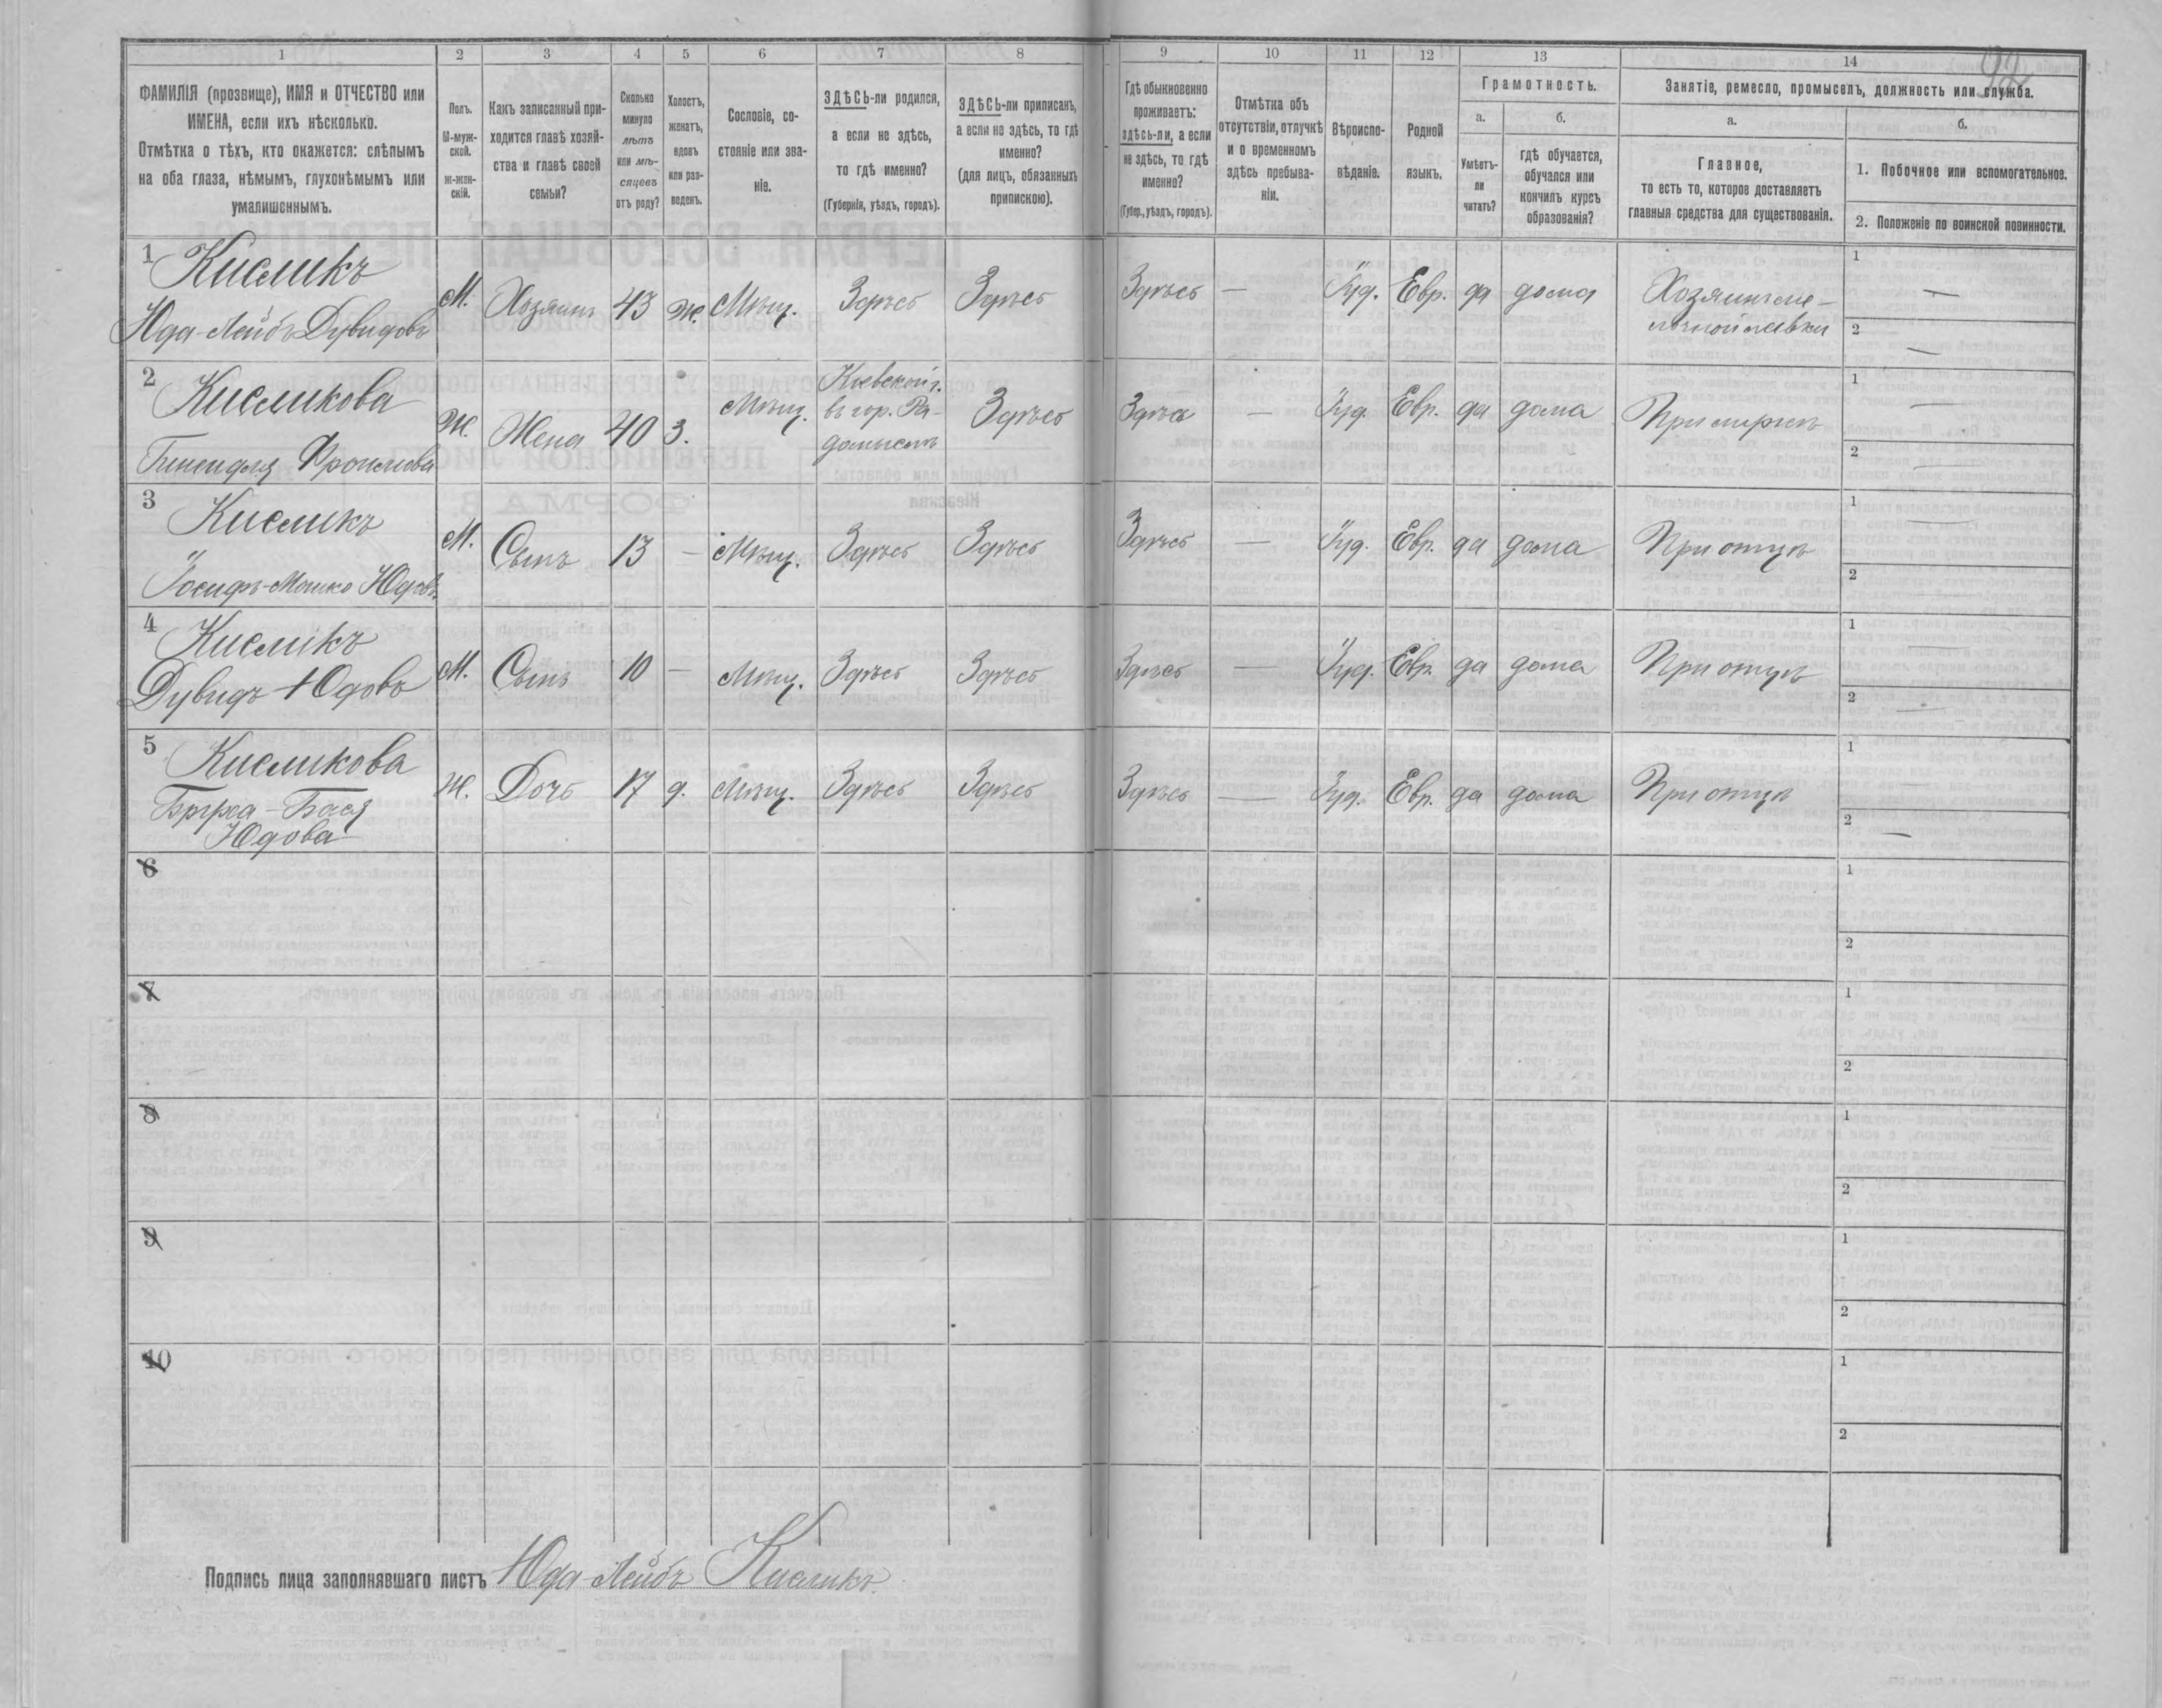 1 2 3 4 5 6 7 8 9 10 11 12 13 14
92
ФАМИЛІЯ (прозвище), ИМЯ и ОТЧЕСТВО или
ИМЕНА, если ихъ нѣсколько.
Отмѣтка о тѣхъ, кто окажется: слѣпымъ
на оба глаза, нѣмымъ, глухонѣмымъ или
умалишеннымъ.
Полъ.
М-муж-
ской.
Ж-жен-
скій.
Какъ записанный при-
ходится главѣ хозяй-
ства и главѣ своей
семьи?
Сколько
минуло
лѣтъ
или мѣ-
сяцевъ
отъ роду?
Холостъ,
женатъ,
вдовъ
или раз-
веденъ.
Сословіе, со-
стояніе или зва-
ніе.
ЗДѢСЬ-ли родился,
а если не здѣсь,
то гдѣ именно?
(Губернія, уѣздъ, городъ).
ЗДѢСЬ-ли приписанъ,
а если не здѣсь, то гдѣ
именно?
(для лицъ, обязанныхъ
припискою).
Гдѣ обыкновенно
проживаетъ:
здѣсь-ли, а если
не здѣсь, то гдѣ
именно?
(Губер., уѣздъ, городъ).
Отмѣтка объ
отсутствіи, отлучкѣ
и о временномъ
здѣсь пребыва-
ніи.
Вѣроиспо-
вѣданіе.
Родной
языкъ.
Грамотность.
а.
Умѣетъ-
ли
читать?
б.
гдѣ обучается,
обучался или
кончилъ курсъ
образованія?
Занятіе, ремесло, промыселъ, должность или служба.
а.
Главное,
то есть то, которое доставляетъ
главныя средства для существованія.
б.
1. Побочное или вспомогательное.
2. Положеніе по воинской повинности.
1 Кисликъ
Юда-Лейбъ Дувидовъ
М. Хозяинъ 43 ж. Мѣщ. Здѣсь Здѣсь Здѣсь — Іуд. Евр. да дома
Хозяинъ ме-
лочной лавки
1 —
2 —
2 Кисликова
Фроимова
Ж. Жена 40 З. Мѣщ.
Кіевской г.
въ гор. Ра-
домыслѣ
Здѣсь Здѣсь — Іуд. Евр. да дома При мужѣ
1 —
2 —
3 Кисликъ
Іосифъ-Мошко Юдовъ
М. Сынъ 13 — Мѣщ. Здѣсь Здѣсь Здѣсь — Іуд. Евр. да дома При отцѣ
1 —
2 —
4 Кисликъ
Дувидъ Юдовъ
М. Сынъ 10 — Мѣщ. Здѣсь Здѣсь Здѣсь — Іуд. Евр. да дома При отцѣ
1 —
2 —
5 Кисликова
Бася
Юдова
Ж. Дочь 17 д. Мѣщ. Здѣсь Здѣсь Здѣсь — Іуд. Евр. да дома При отцѣ
1
2 —
6 1
2
7 1
2
8 1
2
9 1
2
10 1
2
Подпись лица заполнявшаго листъ Юда-Лейбъ Кисликъ.